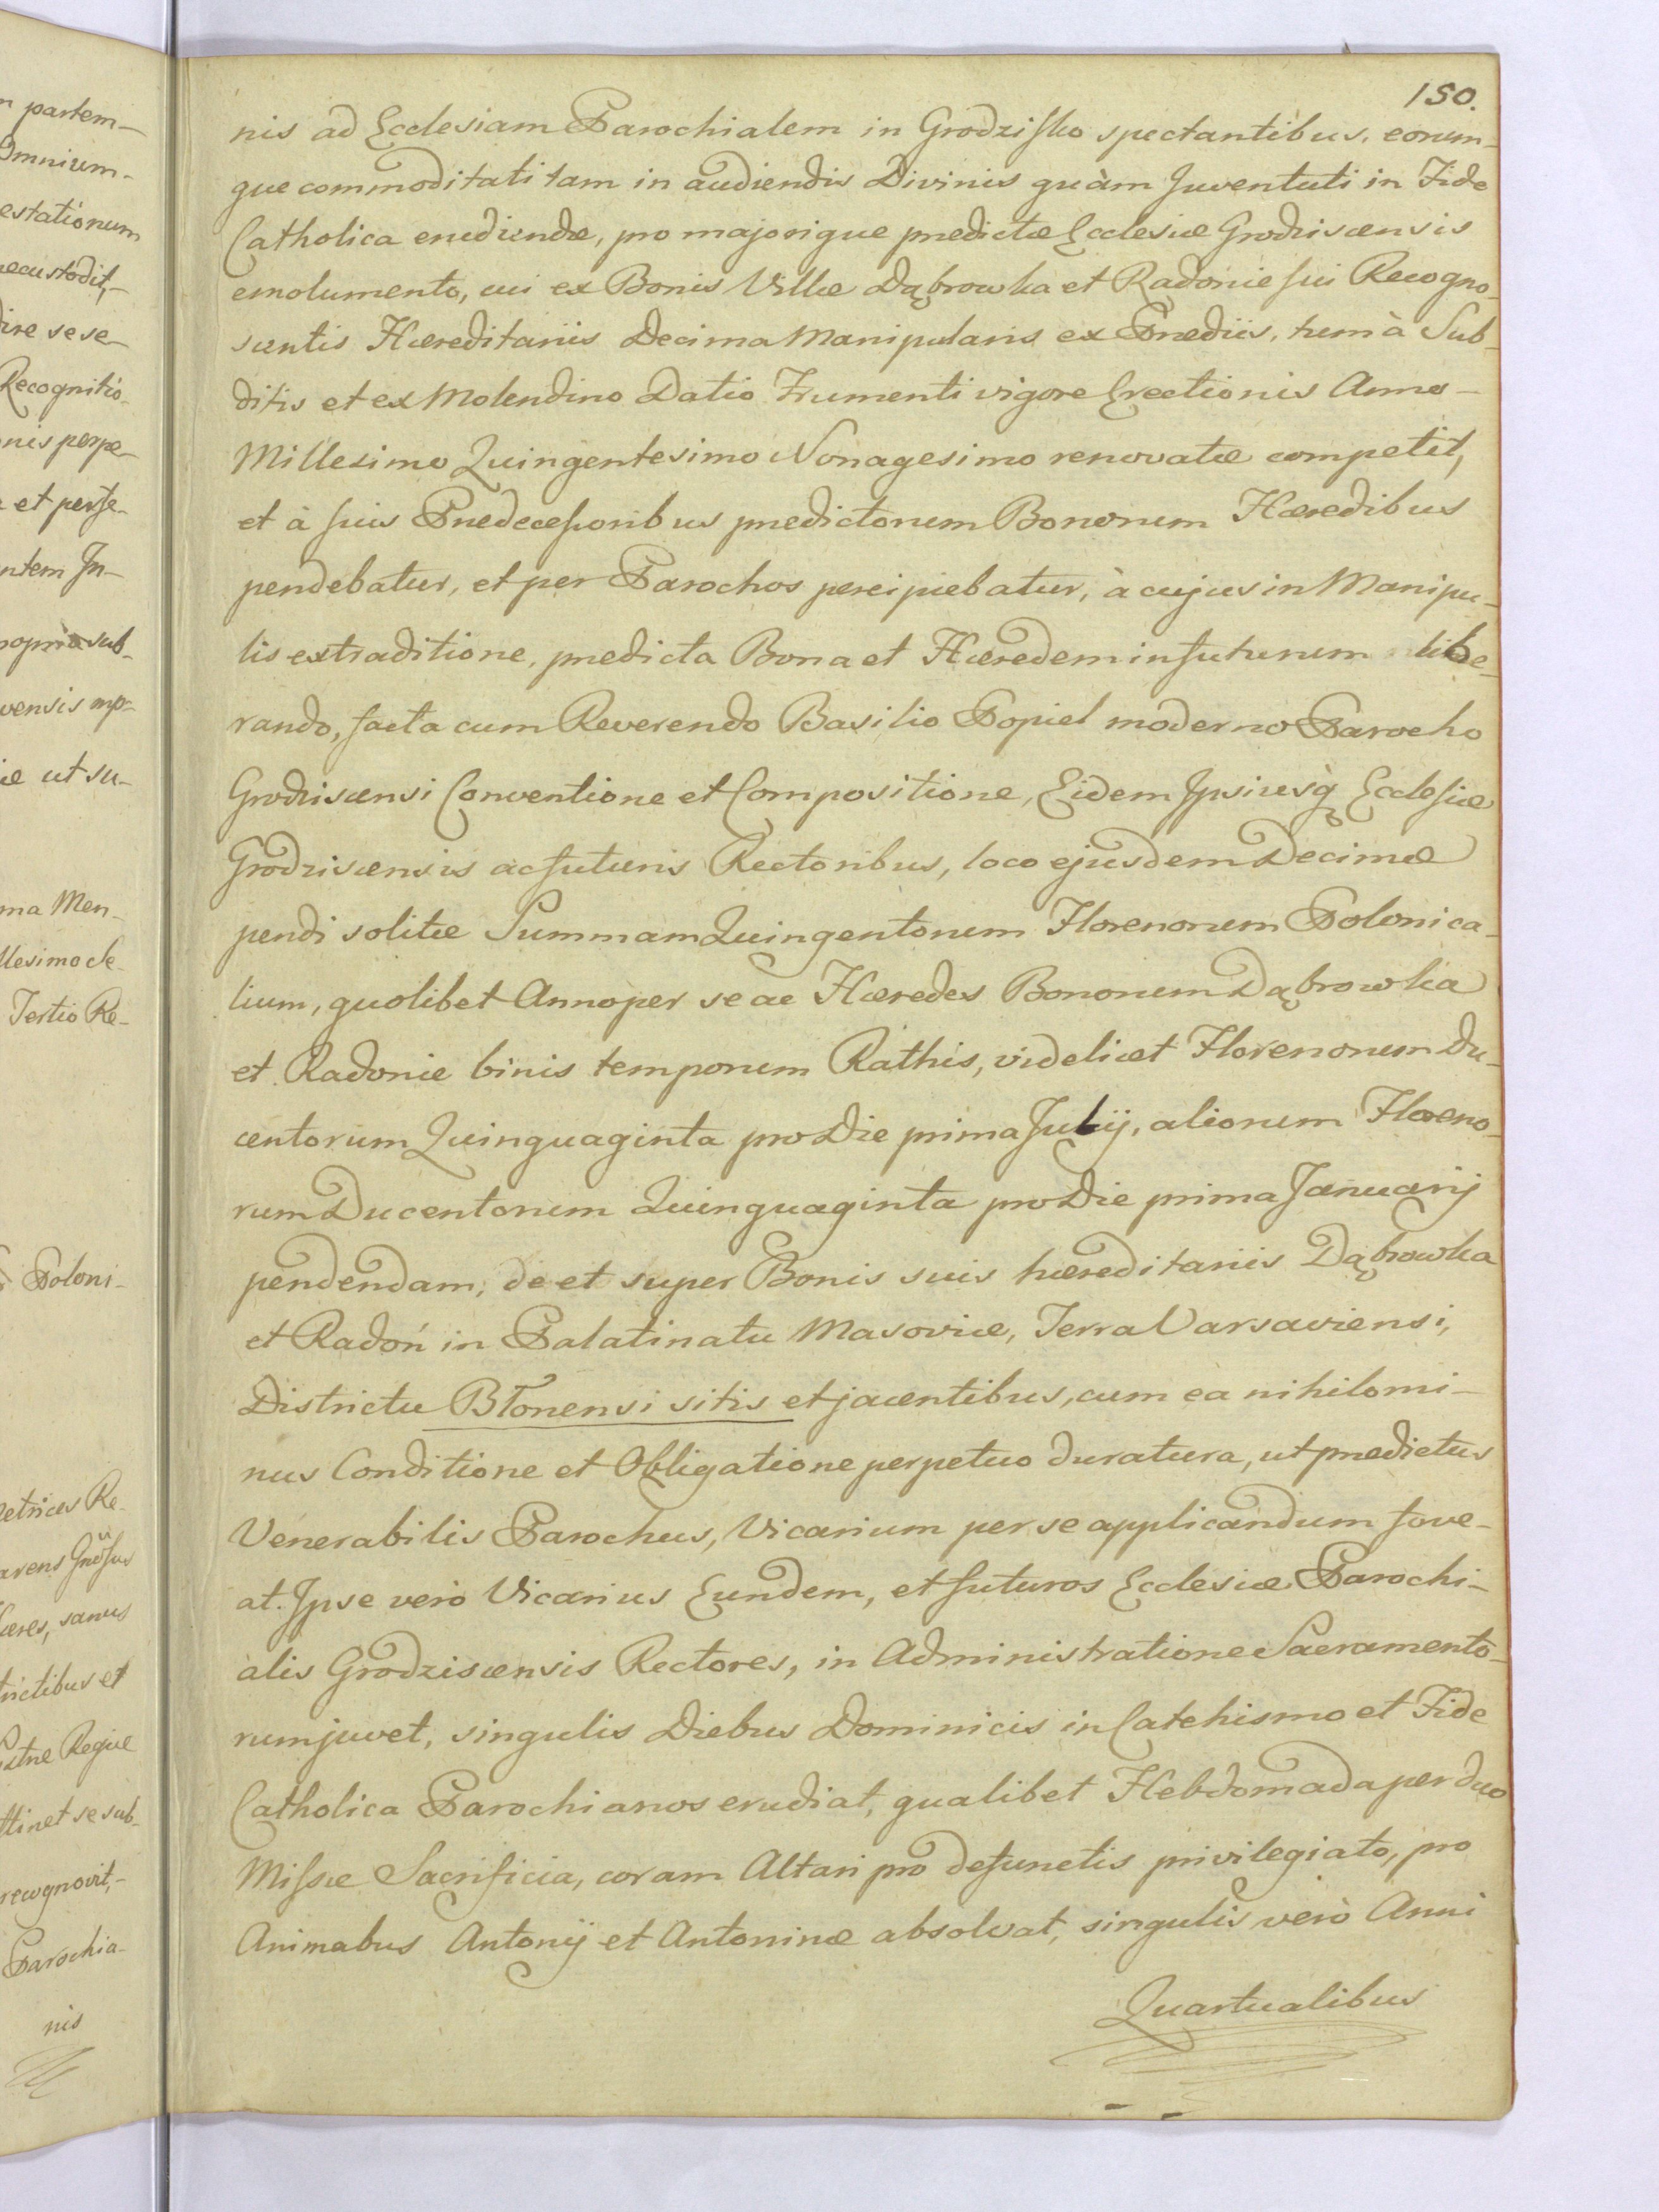 150.
nis ad Ecclesiam Parochialem in Grodzisko spectantibus, eorum-
que commoditati tam in audiendis Divinis quàm Juventuti in Fide
Catholica erudiendæ, pro majorique predictæ Ecclesiæ Grodziscensis
emolumento, cui ex Bonis Villæ Dąbrowka et Radonie sui Recogno-
scentis Hæreditariis Decima Manipularis ex Prædiis, tum à Sub-
ditis et ex Molendino Datio Frumenti vigore Erectionis Anno -
Millesimo Quingentesimo Nonagesimo renovatæ competit,
et à suis Predecessoribus predictorum Bonorum Hæredibus
pendebatur, et per Parochos percipiebatur, à cujus in Manipu-
lis extraditione, predicta Bona et Hæredem in futurum libe-
rando, facta cum Reverendo Basilio Popiel moderno Parocho
Grodziscensi Conventione et Compositione, Eidem Ipsiusq̀ Ecclesiæ
Grodziscensis ac futuris Rectoribus, loco ejusdem Decimæ
pendi solitæ Summam Quingentorum Florenorum Polonica-
lium, quolibet Anno per se ac Hæredes Bonorum Dąbrowka
et Radonie binis temporum Rathis, videlicet Florenorum Du-
centorum Quinquaginta pro Die prima Julij, aliorum Floreno-
rum Ducentorum Quinquaginta pro Die prima Januarij
pendendam, de et super Bonis suis hæreditariis Dąbrowka
et Radoń in Palatinatu Masoviæ, Terra Varsaviensi,
Districtu Błonensi sitis et jacentibus, cum ea nihilomi-
nus Conditione et Obligatione perpetuo duratura, ut prædictus
Venerabilis Parochus, Vicarium per se applicandum fove-
at. Ipse verò Vicarius Eundem, et futuros Ecclesiæ Parochi-
alis Grodziscensis Rectores, in Administratione Sacramento-
rum juvet, singulis Diebus Dominicis in Catehismo et Fide
Catholica Parochianos erudiat, qualibet Hebdomada per duo
Missæ Sacrificia, coram Altari pro defunctis privilegiato, pro
Animabus Antonij et Antoninæ absolvat, singulis verò Anni
Quartualibus